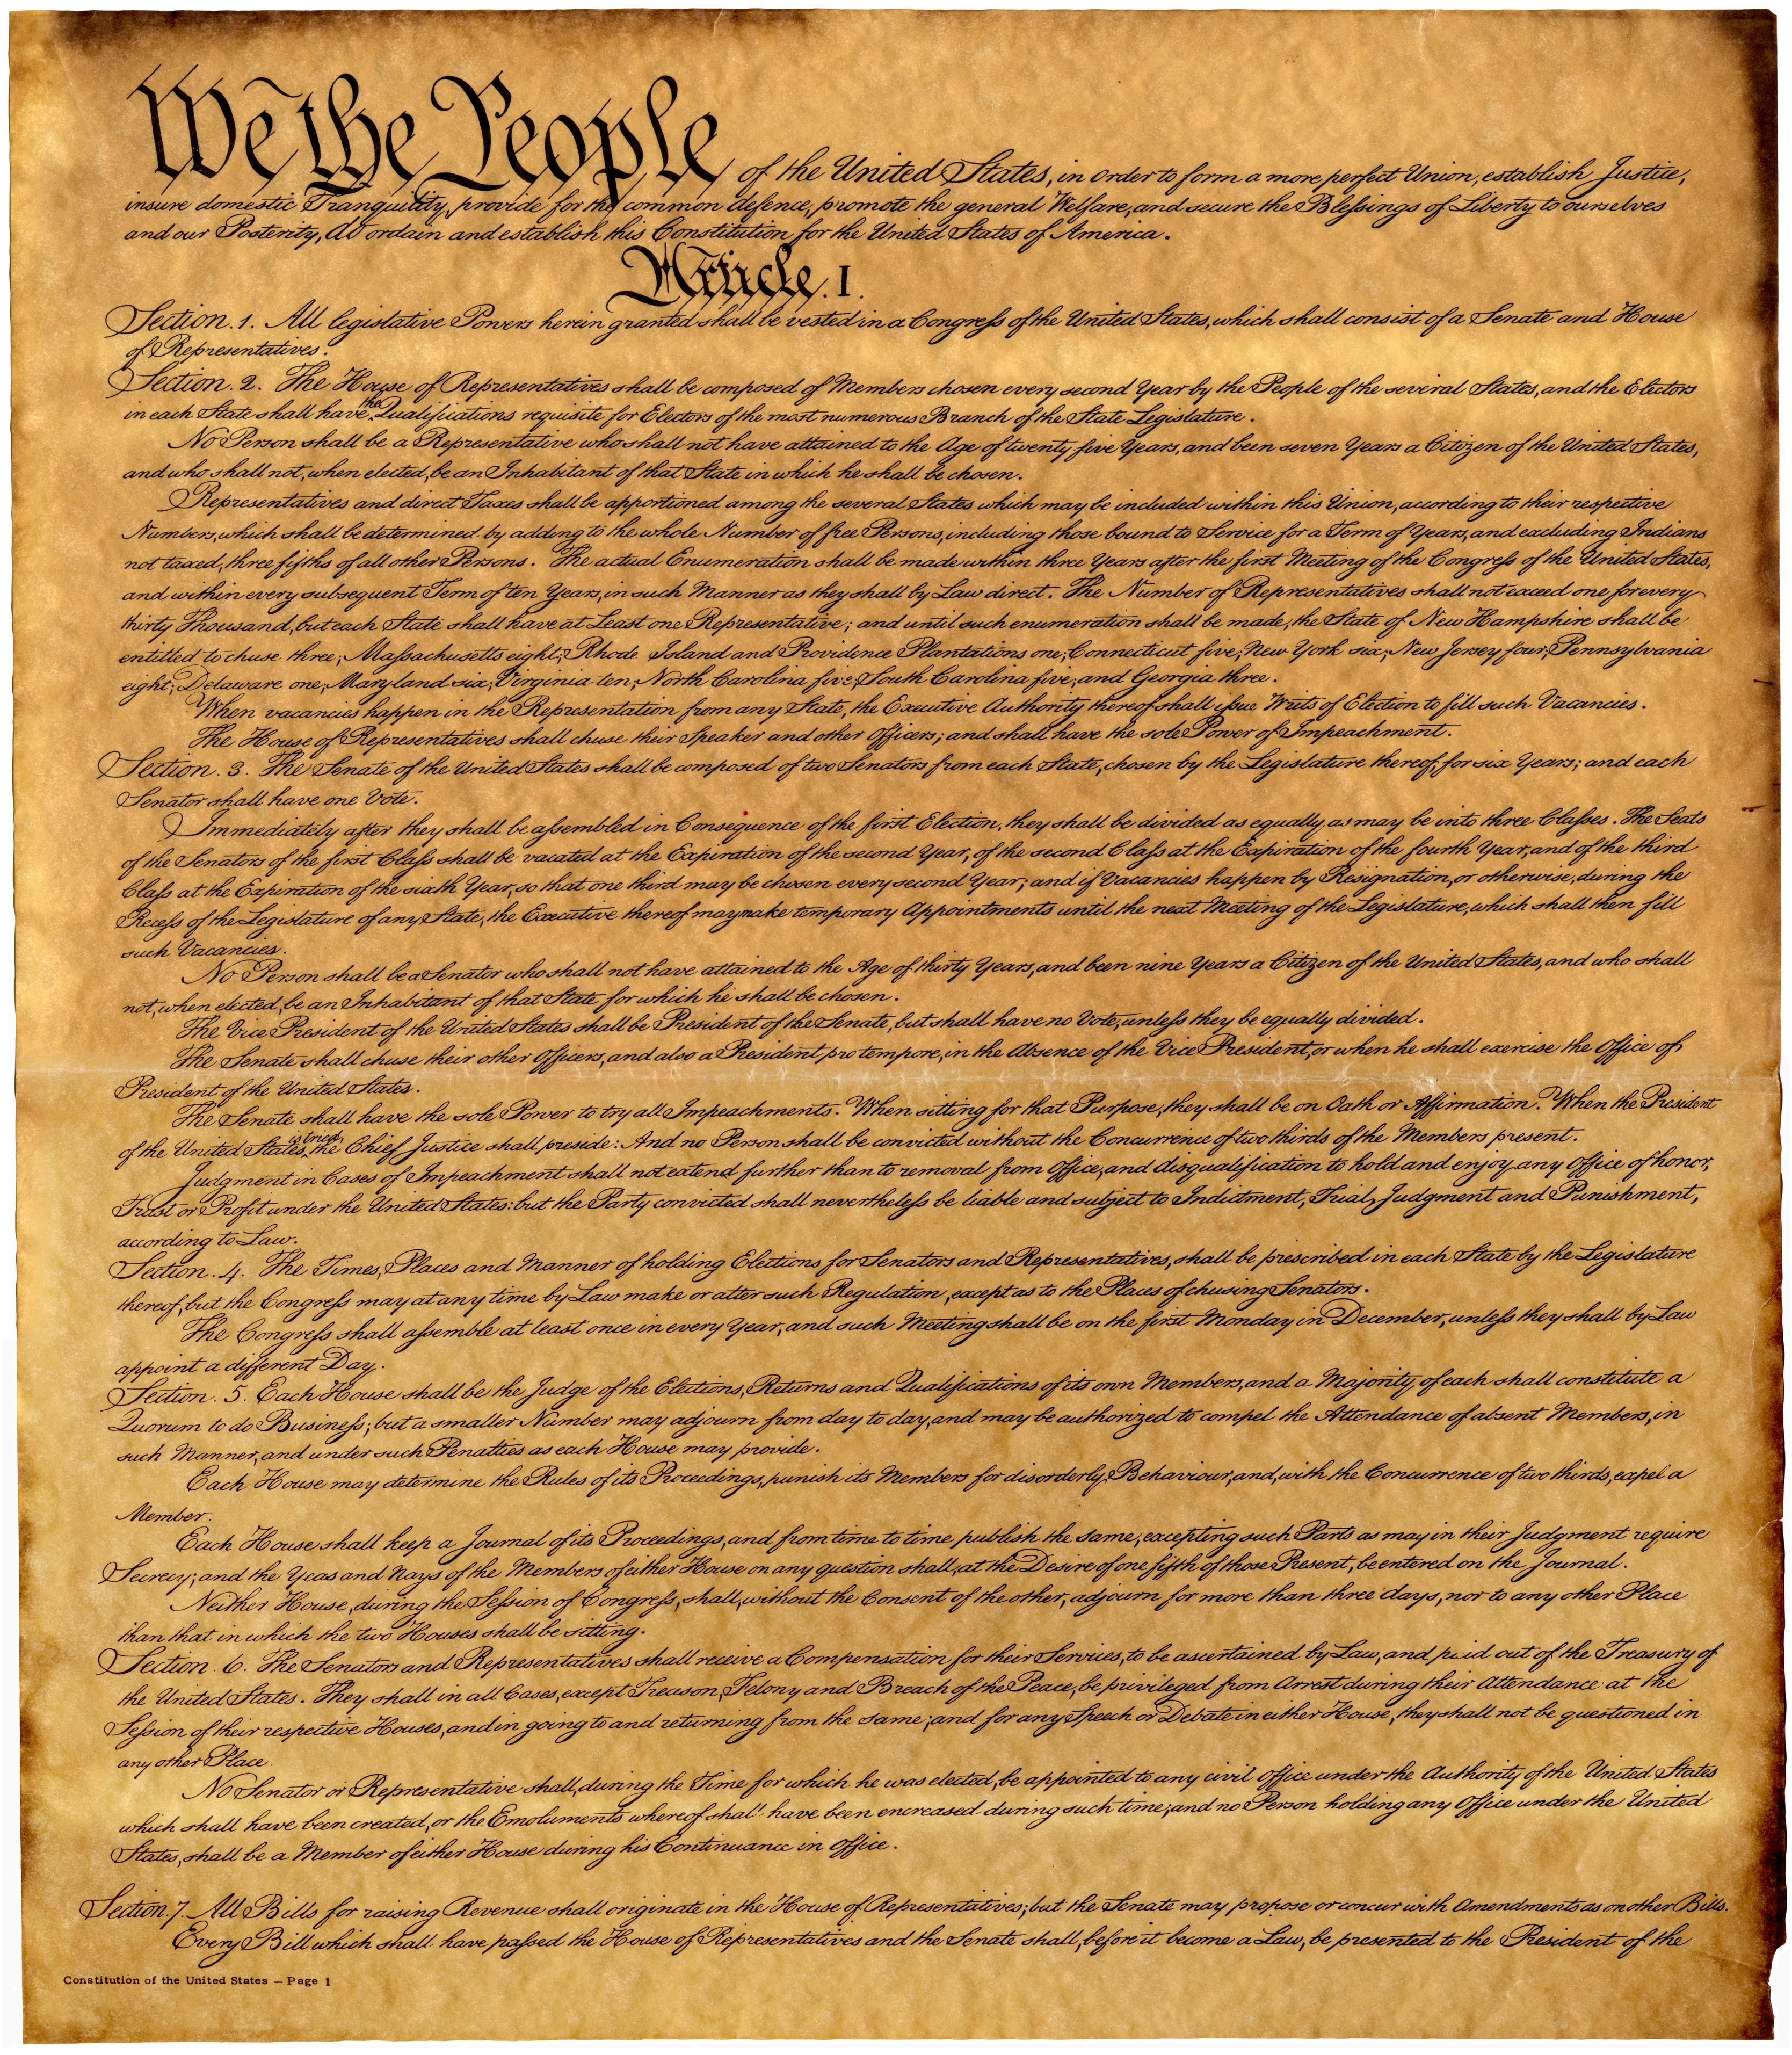 We the People of the United States, in order to form a more perfect Union, establish Justice,
insure domestic Tranquility, provide for the common defence, promote the general Welfare, and secure the Blessings of Liberty to ourselves
and our Posterity, do ordain and establish this Constitution for the United States of America.
Article. I.
Section. 1. All legislative Powers herein granted shall be vested in a Congress of the United States, which shall consist of a Senate and House
of Representatives.
Section. 2. The House of Representatives shall be composed of Members chosen every second Year by the People of the several States, and the Electors
in each State shall have the Qualifications requisite for Electors of the most numerous Branch of the State Legislature.
No Person shall be a Representative who shall not have attained to the Age of twenty five Years, and been seven Years a Citizen of the United States,
and who shall not, when elected, be an Inhabitant of that State in which he shall be chosen.
Representatives and direct Taxes shall be apportioned among the several States which may be included within this Union, according to their respective
Numbers, which shall be determined by adding to the whole Number of free Persons, including those bound to Service for a Term of Years, and excluding Indians
not taxed, three fifths of all other Persons. The actual Enumeration shall be made within three Years after the first Meeting of the Congress of the United States,
and within every subsequent Term of ten Years, in such Manner as they shall by Law direct. The Number of Representatives shall not exceed one for every
thirty Thousand, but each State shall have at Least one Representative; and until such enumeration shall be made, the State of New Hampshire shall be
entitled to chuse three, Massachusetts eight, Rhode Island and Providence Plantations one, Connecticut five, New York six, New Jersey four, Pennsylvania
eight, Delaware one, Maryland six, Virginia ten, North Carolina five, South Carolina five, and Georgia three.
When vacancies happen in the Representation from any State, the Executive Authority thereof shall issue Writs of Election to fill such Vacancies.
The House of Representatives shall chuse their Speaker and other Officers; and shall have the sole Power of Impeachment.
Section. 3. The Senate of the United States shall be composed of two Senators from each State, chosen by the Legislature thereof, for six Years; and each
Senator shall have one Vote.
Immediately after they shall be assembled in Consequence of the first Election, they shall be divided as equally as may be into three Classes. The Seats
of the Senators of the first Class shall be vacated at the Expiration of the second Year, of the second Class at the Expiration of the fourth Year, and of the third
Class at the Expiration of the sixth Year, so that one third may be chosen every second Year; and if Vacancies happen by Resignation, or otherwise, during the
Recess of the Legislature of any State, the Executive thereof may make temporary Appointments until the next Meeting of the Legislature, which shall then fill
such Vacancies.
No Person shall be a Senator who shall not have attained to the Age of thirty Years, and been nine Years a Citizen of the United States, and who shall
not, when elected, be an Inhabitant of that State for which he shall be chosen.
The Vice President of the United States shall be President of the Senate, but shall have no Vote, unless they be equally divided.
The Senate shall chuse their other Officers, and also a President pro tempore, in the Absence of the Vice President, or when he shall exercise the Office of
President of the United States.
The Senate shall have the sole Power to try all Impeachments. When sitting for that Purpose, they shall be on Oath or Affirmation. When the President
of the United States is tried, the Chief Justice shall preside: And no Person shall be convicted without the Concurrence of two thirds of the Members present.
Judgment in Cases of Impeachment shall not extend further than to removal from Office, and disqualification to hold and enjoy any Office of honor,
Trust or Profit under the United States: but the Party convicted shall nevertheless be liable and subject to Indictment, Trial, Judgment and Punishment,
according to Law.
Section. 4. The Times, Places and Manner of holding Elections for Senators and Representatives, shall be prescribed in each State by the Legislature
thereof, but the Congress may at any time by Law make or alter such Regulation, except as to the Places of chusing Senators.
The Congress shall assemble at least once in every Year, and such Meeting shall be on the first Monday in December, unless they shall by Law
appoint a different Day.
Section. 5. Each House shall be the Judge of the Elections, Returns and Qualifications of its own Members, and a Majority of each shall constitute a
Quorum to do Business; but a smaller Number may adjourn from day to day, and may be authorized to compel the Attendance of absent Members, in
such Manner, and under such Penalties as each House may provide.
Each House may determine the Rules of its Proceedings, punish its Members for disorderly Behaviour, and, with the Concurrence of two thirds, expel a
Member.
Each House shall keep a Journal of its Proceedings, and from time to time publish the same, excepting such Parts as may in their Judgment require
Secrecy; and the Yeas and Nays of the Members of either House on any question shall, at the Desire of one fifth of those Present, be entered on the Journal.
Neither House, during the Session of Congress, shall, without the Consent of the other, adjourn for more than three days, nor to any other Place
than that in which the two Houses shall be sitting.
Section. 6. The Senators and Representatives shall receive a Compensation for their Services, to be ascertained by Law, and paid out of the Treasury of
the United States. They shall in all Cases, except Treason, Felony and Breach of the Peace, be privileged from Arrest during their Attendance at the
Session of their respective Houses, and in going to and returning from the same; and for any Speech or Debate in either House, they shall not be questioned in
any other Place.
No Senator or Representative shall, during the Time for which he was elected, be appointed to any civil Office under the Authority of the United States
which shall have been created, or the Emoluments whereof shall have been encreased during such time; and no Person holding any Office under the United
States, shall be a Member of either House during his Continuance in Office.
Section. 7. All Bills for raising Revenue shall originate in the House of Representatives; but the Senate may propose or concur with Amendments as on other Bills.
Every Bill which shall have passed the House of Representatives and the Senate shall, before it become a Law, be presented to the President of the
Constitution of the United States — Page 1